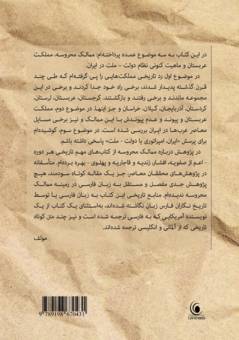 در این کتاب به سه موضوع عمده پرداخته‌ام: ممالک محروسه، مملکت
عربستان و ماهیت کنونی نظام دولت - ملت در ایران.
در موضوع اول رد تاریخی مملکت‌هایی را پی گرفته‌ام که طی چند
قرن گذشته پدیدار شدند، برخی راه خود جدا کردند و برخی در این
مجموعه ماندند و برخی رفتند و بازگشتند. گرجستان، عربستان، لرستان،
کردستان، آذربایجان، گیلان، خراسان و جز اینها. در موضوع دوم، مملکت
عربستان و پیوند و عدم پیوندش با این ممالک و نیز برخی مسایل
معاصر عرب‌ها در ایران بررسی شده است. در موضوع سوم، کوشیده‌ام
برای پرسش «ایران، امپراتوری یا دولت - ملت» پاسخی داشته باشم.
در پژوهش درباره ممالک محروسه از کتاب‌های مهم تاریخی هر دوره
- اعم از صفویه، افشار، زندیه و قاجاریه و پهلوی - بهره برده‌ام. متأسفانه
در پژوهش‌های محققان معاصر، جز یک مقاله کوتاه سودمند، هیچ
پژوهش جدی مفصل و مستقل به زبان فارسی در زمینه ممالک
محروسه ندیده‌ام. منابع تاریخی این کتاب به زبان فارسی یا توسط
تاریخ نگاران فارس زبان نگاشته شده‌اند، به‌استثنای یک کتاب از یک
نویسنده آمریکایی که به فارسی ترجمه شده است و نیز چند متن کوتاه
تاریخی که از آلمانی و انگلیسی ترجمه شده‌اند.
مولف
9 789198 670431